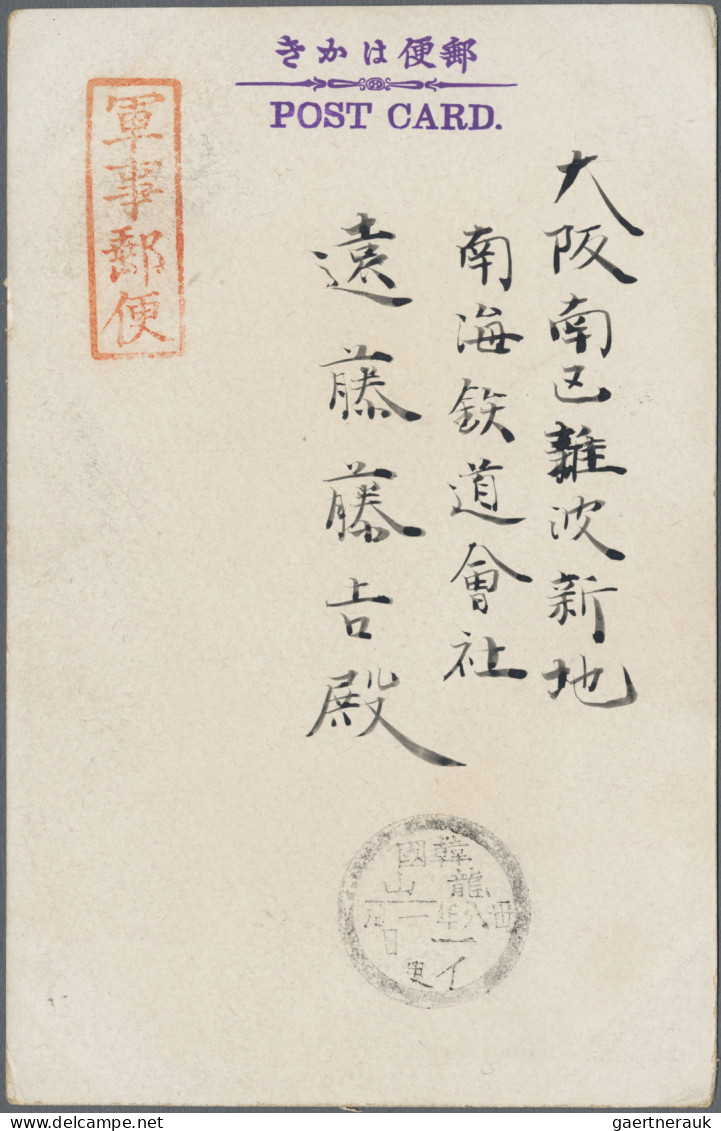 郵便はかき
POST CARD.
軍事郵便
大阪南区難波新地
南海鉄道會社
遠藤藤吉殿
韓國
龍山
卅八年一月
一日
イ便
gaertnerauk